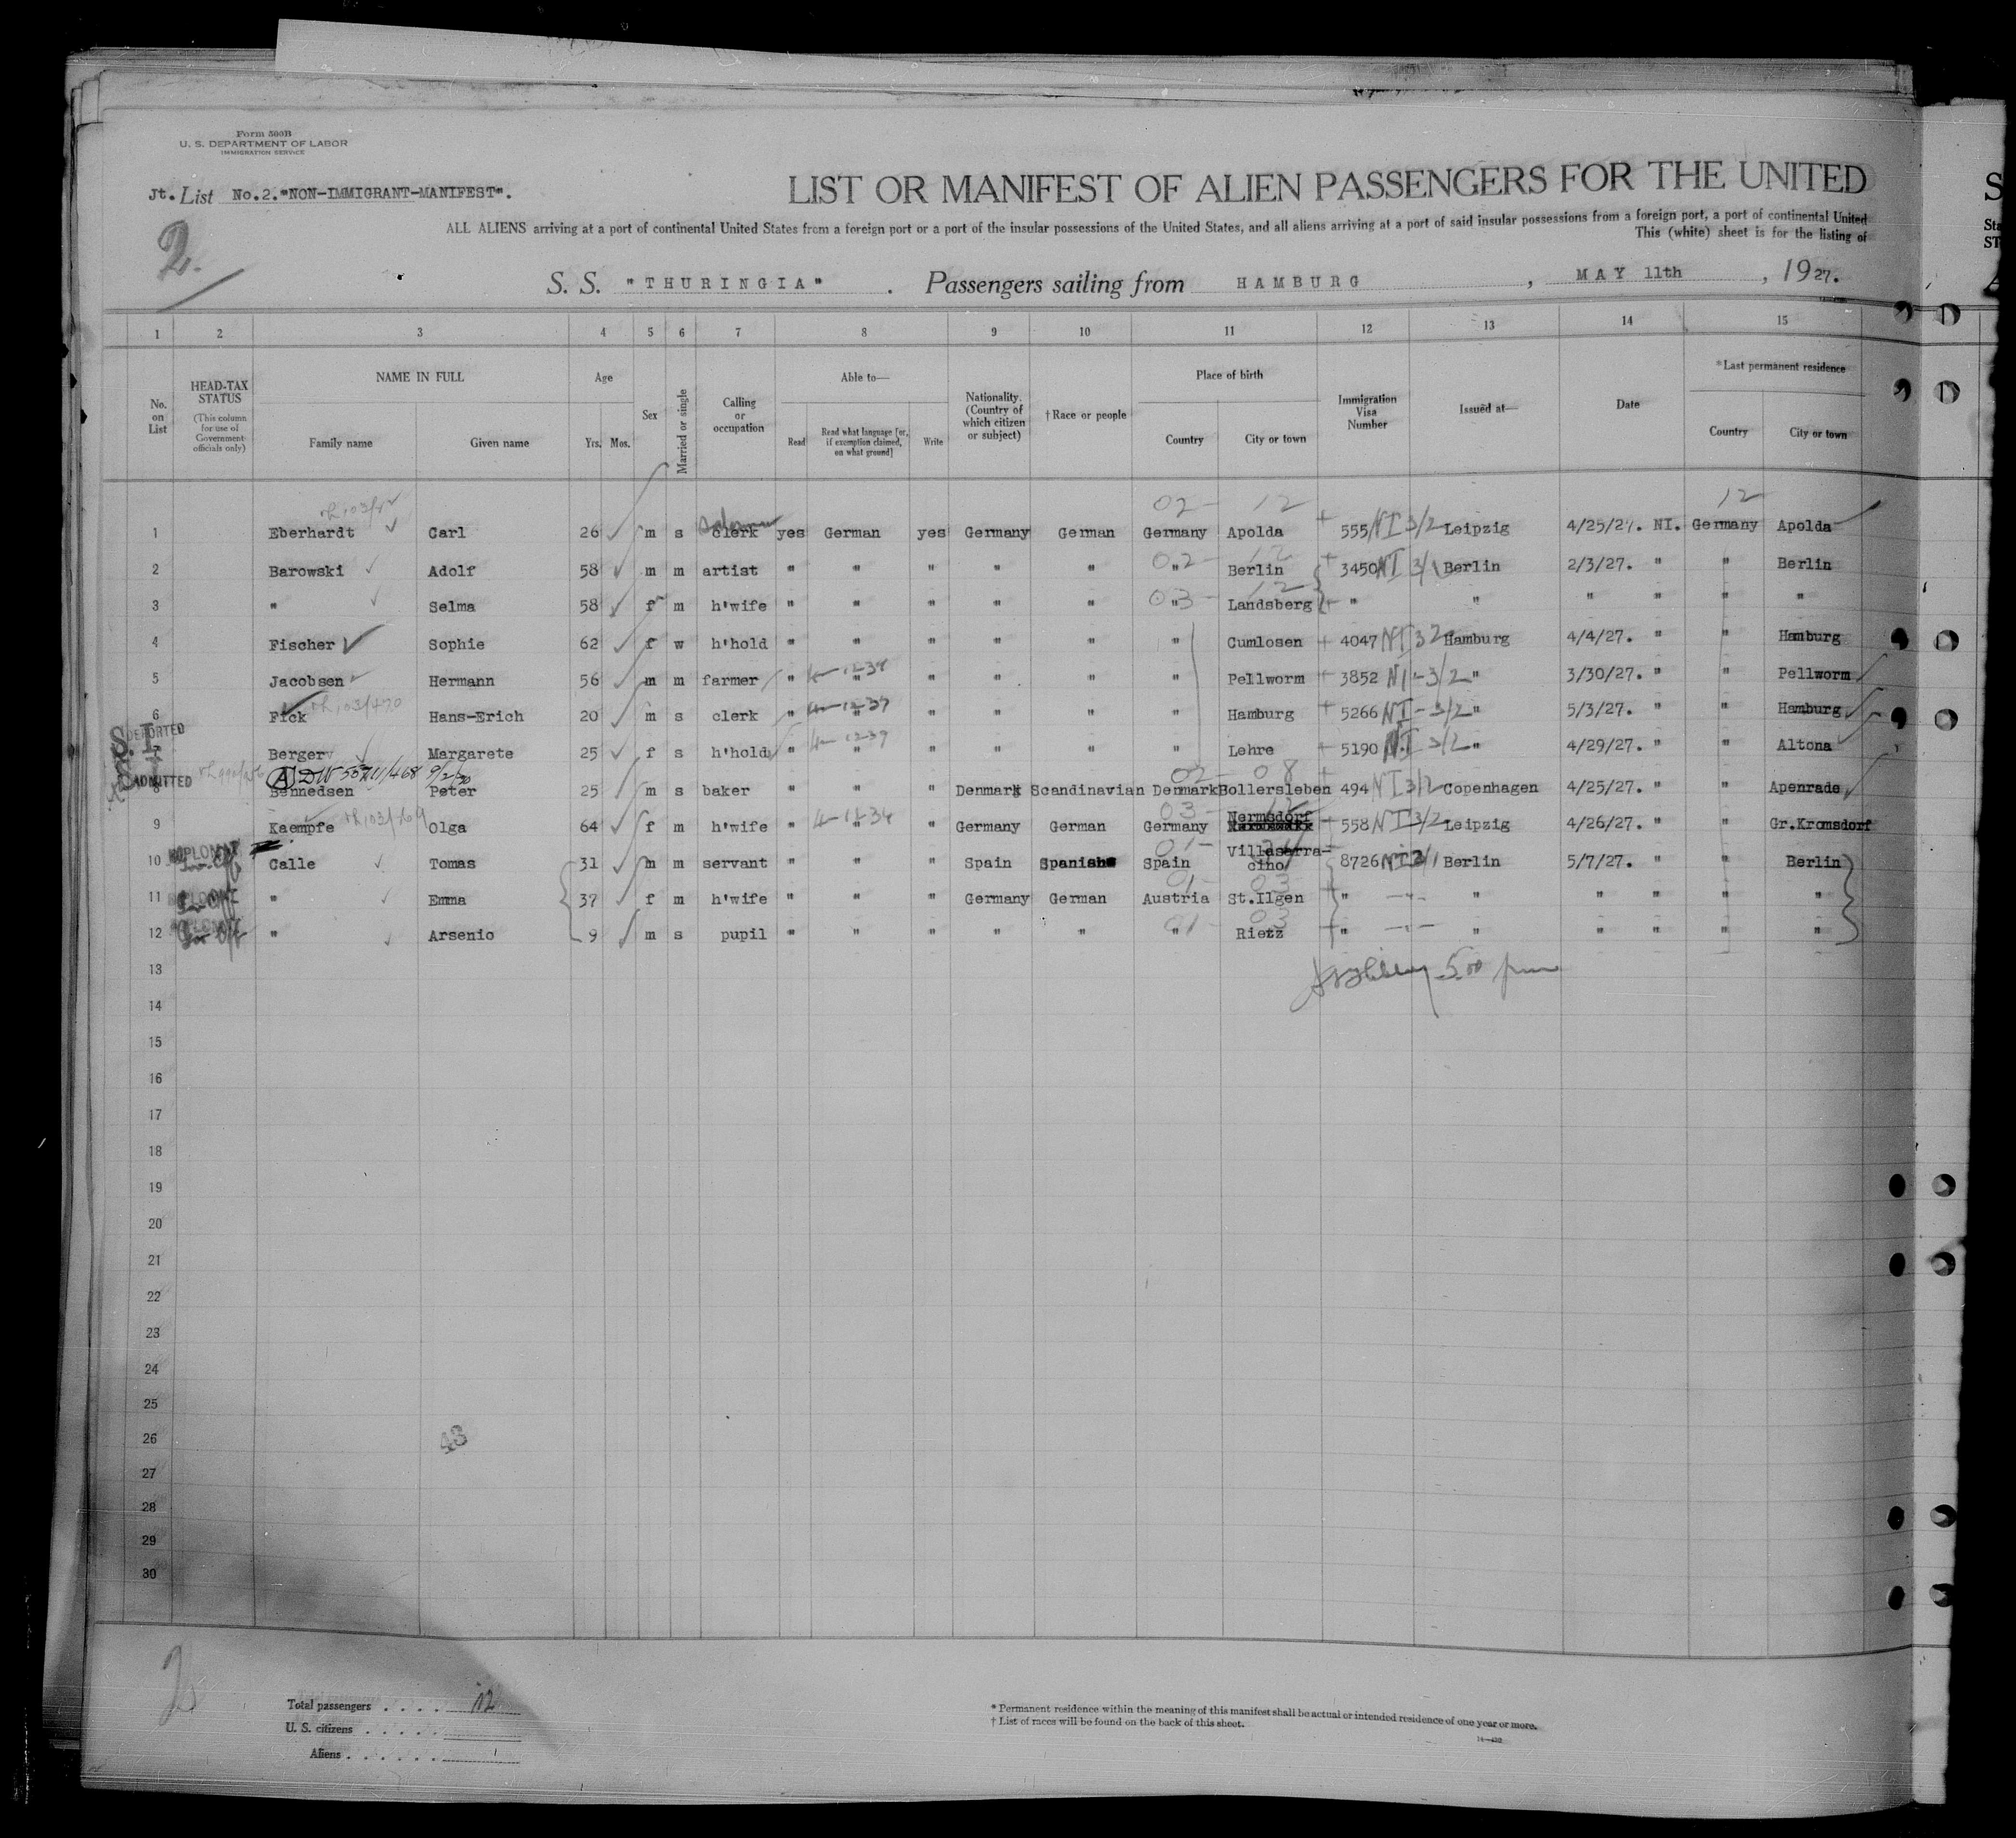 Form 500B
U. S. DEPARTMENT OF LABOR
IMMIGRATION SERVICE
Jt. List No.2."NON-IMMIGRANT-MANIFEST".
2.
LIST OR MANIFEST OF ALIEN PASSENGERS FOR THE UNITED
ALL ALIENS arriving at a port of continental United States from a foreign port or a port of the insular possessions of the United States, and all aliens arriving at a port of said insular possessions from a foreign port, a port of continental United
This (white) sheet is for the listing of
S. S. "THURINGIA". Passengers sailing from HAMBURG, MAY 11th, 1927.
1 2 3 4 5 6 7 8 9 10 11 12 13 14 15
No. on List
HEAD-TAX STATUS
(This column for use of Government officials only)
NAME IN FULL
Family name Given name
Age
Yrs. Mos.
Sex
Married or single
Calling or occupation
Able to—
Read Read what language [or, if exemption claimed, on what ground] Write
Nationality. (Country of which citizen or subject)
†Race or people
Place of birth
Country City or town
Immigration Visa Number
Issued at—
Date
*Last permanent residence
Country City or town
02- 12 12
1 Eberhardt Carl 26 m s clerk yes German yes Germany German Germany Apolda 555 NI 3/2 Leipzig 4/25/27. NI. Germany Apolda
2 Barowski Adolf 58 m m artist " " " " " 02- " 12 Berlin 3450 NI 3/1 Berlin 2/3/27. " " Berlin
3 " Selma 58 f m h'wife " " " " " 03- " 12 Landsberg " " " " " "
4 Fischer Sophie 62 f w h'hold " " " " " " Cumlosen 4047 NI 3/2 Hamburg 4/4/27. " " Hamburg
5 Jacobsen Hermann 56 m m farmer " " " " " " Pellworm 3852 NI-3/2 " 3/30/27. " " Pellworm
6 Fick Hans-Erich 20 m s clerk " " " " " " Hamburg 5266 NI-3/2 " 5/3/27. " " Hamburg
DEPORTED
S. I.
7 Berger Margarete 25 f s h'hold " " " " " " Lehre 5190 NI 3/2 " 4/29/27. " " Altona
ADMITTED
02- 08
8 Bennedsen Peter 25 m s baker " " " Denmark Scandinavian Denmark Bollersleben 494 NI 3/2 Copenhagen 4/25/27. " " Apenrade
03- 12
9 Kaempfe Olga 64 f m h'wife " " " Germany German Germany Nermsdorf 558 NI 3/2 Leipzig 4/26/27. " " Gr.Kromsdorf
DIPLOMAT
10 Calle Tomas 31 m m servant " " " Spain Spanish Spain Villasarra-
cino 8726 NI 3/1 Berlin 5/7/27. " " Berlin
01- 03
11 " Emma 37 f m h'wife " " " Germany German Austria St.Ilgen " " " " " "
01- 03
12 " Arsenio 9 m s pupil " " " " " " Rietz " " " " " "
13
5 00 pm
14
15
16
17
18
19
20
21
22
23
24
25
26
43
27
28
29
30
Total passengers . . . . 12
U. S. citizens . . . . .
Aliens . . . . . .
* Permanent residence within the meaning of this manifest shall be actual or intended residence of one year or more.
† List of races will be found on the back of this sheet.